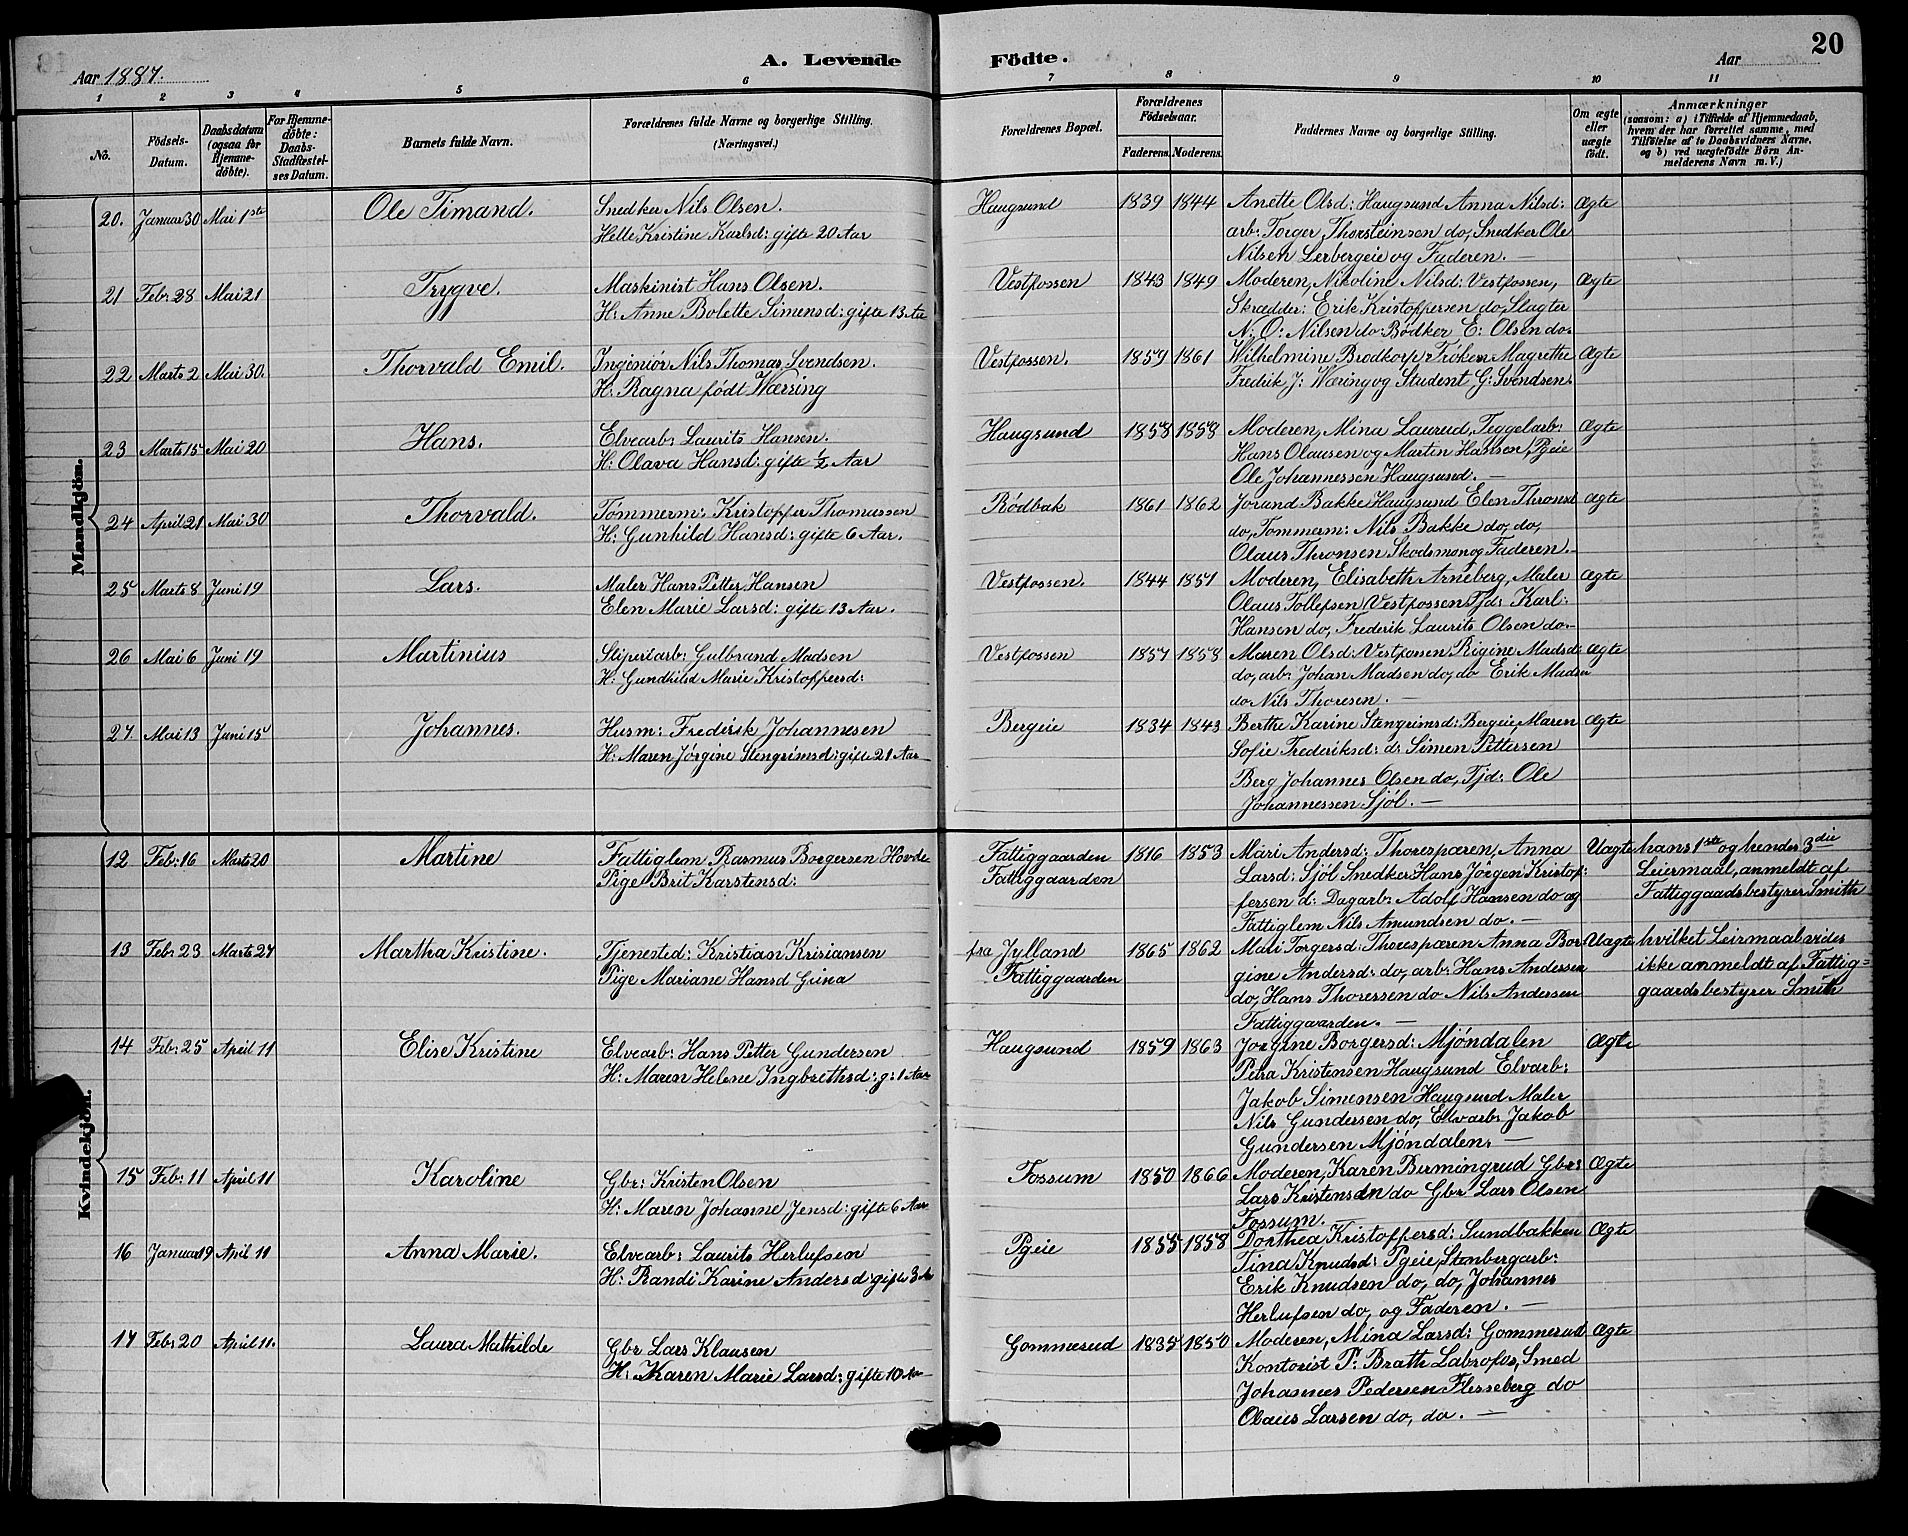 Aar 1887.
A. Levende Födte.
Aar
20
1 2 3 4 5 6 7 8 9 10 11
No.
Födsels-Datum.
Daabsdatum (ogsaa for Hjemme-döbte).
For Hjemme-döbte: Daabs-Stadfæstel-ses Datum.
Barnets fulde Navn.
Forældrenes fulde Navne og borgerlige Stilling. (Næringsvei.)
Forældrenes Bopæl.
Forældrenes Födselsaar.
Faderens. Moderens.
Faddernes Navne og borgerlige Stilling.
Om ægte eller uægte födt.
Anmærkninger
(saasom: a) i Tilfælde af Hjemmedaab, hvem der har forrettet samme, med Tilföielse af to Daabsvidners Navne, og b) ved uægtefödte Börn An-melderens Navn m. V.)
Mandkjön.
20. Januar 30 Mai 1ste Ole Timand. Snedker Nils Olsen. Haugsund 1839 1844 Anette Olsd: Haugsund Anna Nilsd: Ægte
Helle Kristine Karlsd: gifte 20 Aar arb: Torger Thorsteinsen do, Snedker Ole
Nilsen Lerbergeie og Faderen. —
21 Febr 28 Mai 21 Trygve. Maskinist Hans Olsen. Vestfossen 1843 1849 Moderen, Nikoline Nilsd: Vestfossen, Ægte
H: Anne Bolette Simensd: gifte 13 Aa Skrædder: Erik Kristoffersen do, Slagter
N: O: Nilsen do: Bødker E: Olsen do.
22 Marts 2 Mai 30. Thorvald Emil. Ingeniør Nils Thomas Svendsen. Vestfossen. 1859 1861 Wilhelmine Brodkorp Frøken Magrethe Ægte
H: Ragna født Wærring Fredrik J: Wæring og Student G: Svendsen.
23 Marts 15 Mai 20 Hans. Elvearb: Laurits Hansen. Haugsund 1858 1858 Moderen, Mina Laurud, Teggelarb: Ægte
H: Olava Hansd: gifte ½ Aar Hans Olausen og Martin Hansen, Pgeie
Ole Johannessen Haugsund. —
24 April 21 Mai 30 Thorvald. Tømmerm: Kristoffer Thomassen Rødbak 1861 1862 Jorand Bakke Haugsund Elen Thronsd Ægte
H: Gunhild Hansd: gifte 6 Aar. do, Tommerm: Nils Bakke do, do,
Olaus Thronsen Skodsmon og Faderen. —
25 Marts 8 Juni 19 Lars. Maler Hans Petter Hansen Vestfossen. 1844 1851 Moderen, Elisabeth Arneberg, Maler Ægte
Elen Marie Larsd: gifte 13 Aar. Olaus Tollefsen Vestfossen Tjd: Karl:
Hansen do, Frederik Laurits Olsen do.—
26 Mai 6 Juni 19 Martinius Sliperiarb: Gulbrand Madsen Vestfossen 1857 1858 Maren Olsd: Vestfossen: Rigine Madsd: Ægte
H: Gundhild Marie Kristoffersd: do, arb: Johan Madsen do, do Erik Madsen
do Nils Thoresen. —
27 Mai 13 Juni 15 Johannes. Husm: Frederik Johannesen Bergeie 1834 1843 Berthe Karine Stengrimsd: Bergeie, Maren Ægte
H: Maren Jørgine Stengrimsd: gifte 21 Aar Sofie Frederiksd: d: Simen Pettersen
Berg Johannes Olsen do, Tjd: Ole
Johannessen Sjöl. —
Kvindekjön.
12 Feb: 16 Marts 20 Martine Fattiglem Rasmus Borgersen Hovde Fattiggaarden 1816 1853 Mari Andersd: Thorespæren, Anna Uægte hans 1ste og hendes 3die
Pige Brit Karstensd: Fattiggaarden Larsd: Sjöl Snedker Hans Jörgen Kristof: Leiermaal, anmeldt af
fersen d: Dagarb: Adolf Hansen do og Fattiggaardsbestyrer Smith
Fattiglem Nils Amundsen do. —
13 Feb: 23 Marts 27 Martha Kristine. Tjenested: Kristian Krisiansen fra Jylland 1865 1862 Mari Torgersd: Thorespæren Anna Bor Uægte hvilket Leirmaal vides
Pige Mariane Hansd Guna Fattiggaarden gine Andersd: do, arb: Hans Andersen ikke anmeldt af Fattig=
do, Hans Thoressen do Nils Andersen gaardsbestyrer Smith
Fattiggaarden. —
14 Feb: 25 April 11 Elise Kristine Elvearb: Hans Petter Gundersen Haugsund 1859 1863 Jorgine Borgersd: Mjöndalen Ægte
H: Maren Helene Ingbrethsd: g: 1 Aar Petra Kristensen Haugsund Elvarb:
Jakob Simensen Haugsund Maler
Nils Gundersen do, Elvarb: Jakob
Gundersen Mjöndalen. —
15 Feb: 11 April 11 Karoline Gbr: Kristen Olsen Fossum 1850 1866 Moderen, Karen Bermingrud Gbr: Ægte
H: Maren Johanne Jensd: gifte 6 Aar Lars Kristensen do Gbr Lars Olsen
Fossum.
16 Januar 19 April 11 Anna Marie. Elvearb: Laurits Herlufsen Pgeie 1855 1858 Dorthea Kristoffersd: Sundbakken Ægte
H: Randi Karine Andersd: gifte 3 Aa Tina Knudsd: Pgeie, Stenbergarb:
Erik Knudsen do, do, Johannes
Herlufsen do, og Faderen. —
17 Feb: 20 April 11. Laura Mathilde Gbr Lars Klausen Gommerud 1835 1850 Moderen, Mina Larsd: Gommerud Ægte
H: Karen Marie Larsd: gifte 10 Aar Kontorist P: Brath Labrofos, Smed
Johannes Pedersen Flesseberg do
Olaus Larsen do, do. —